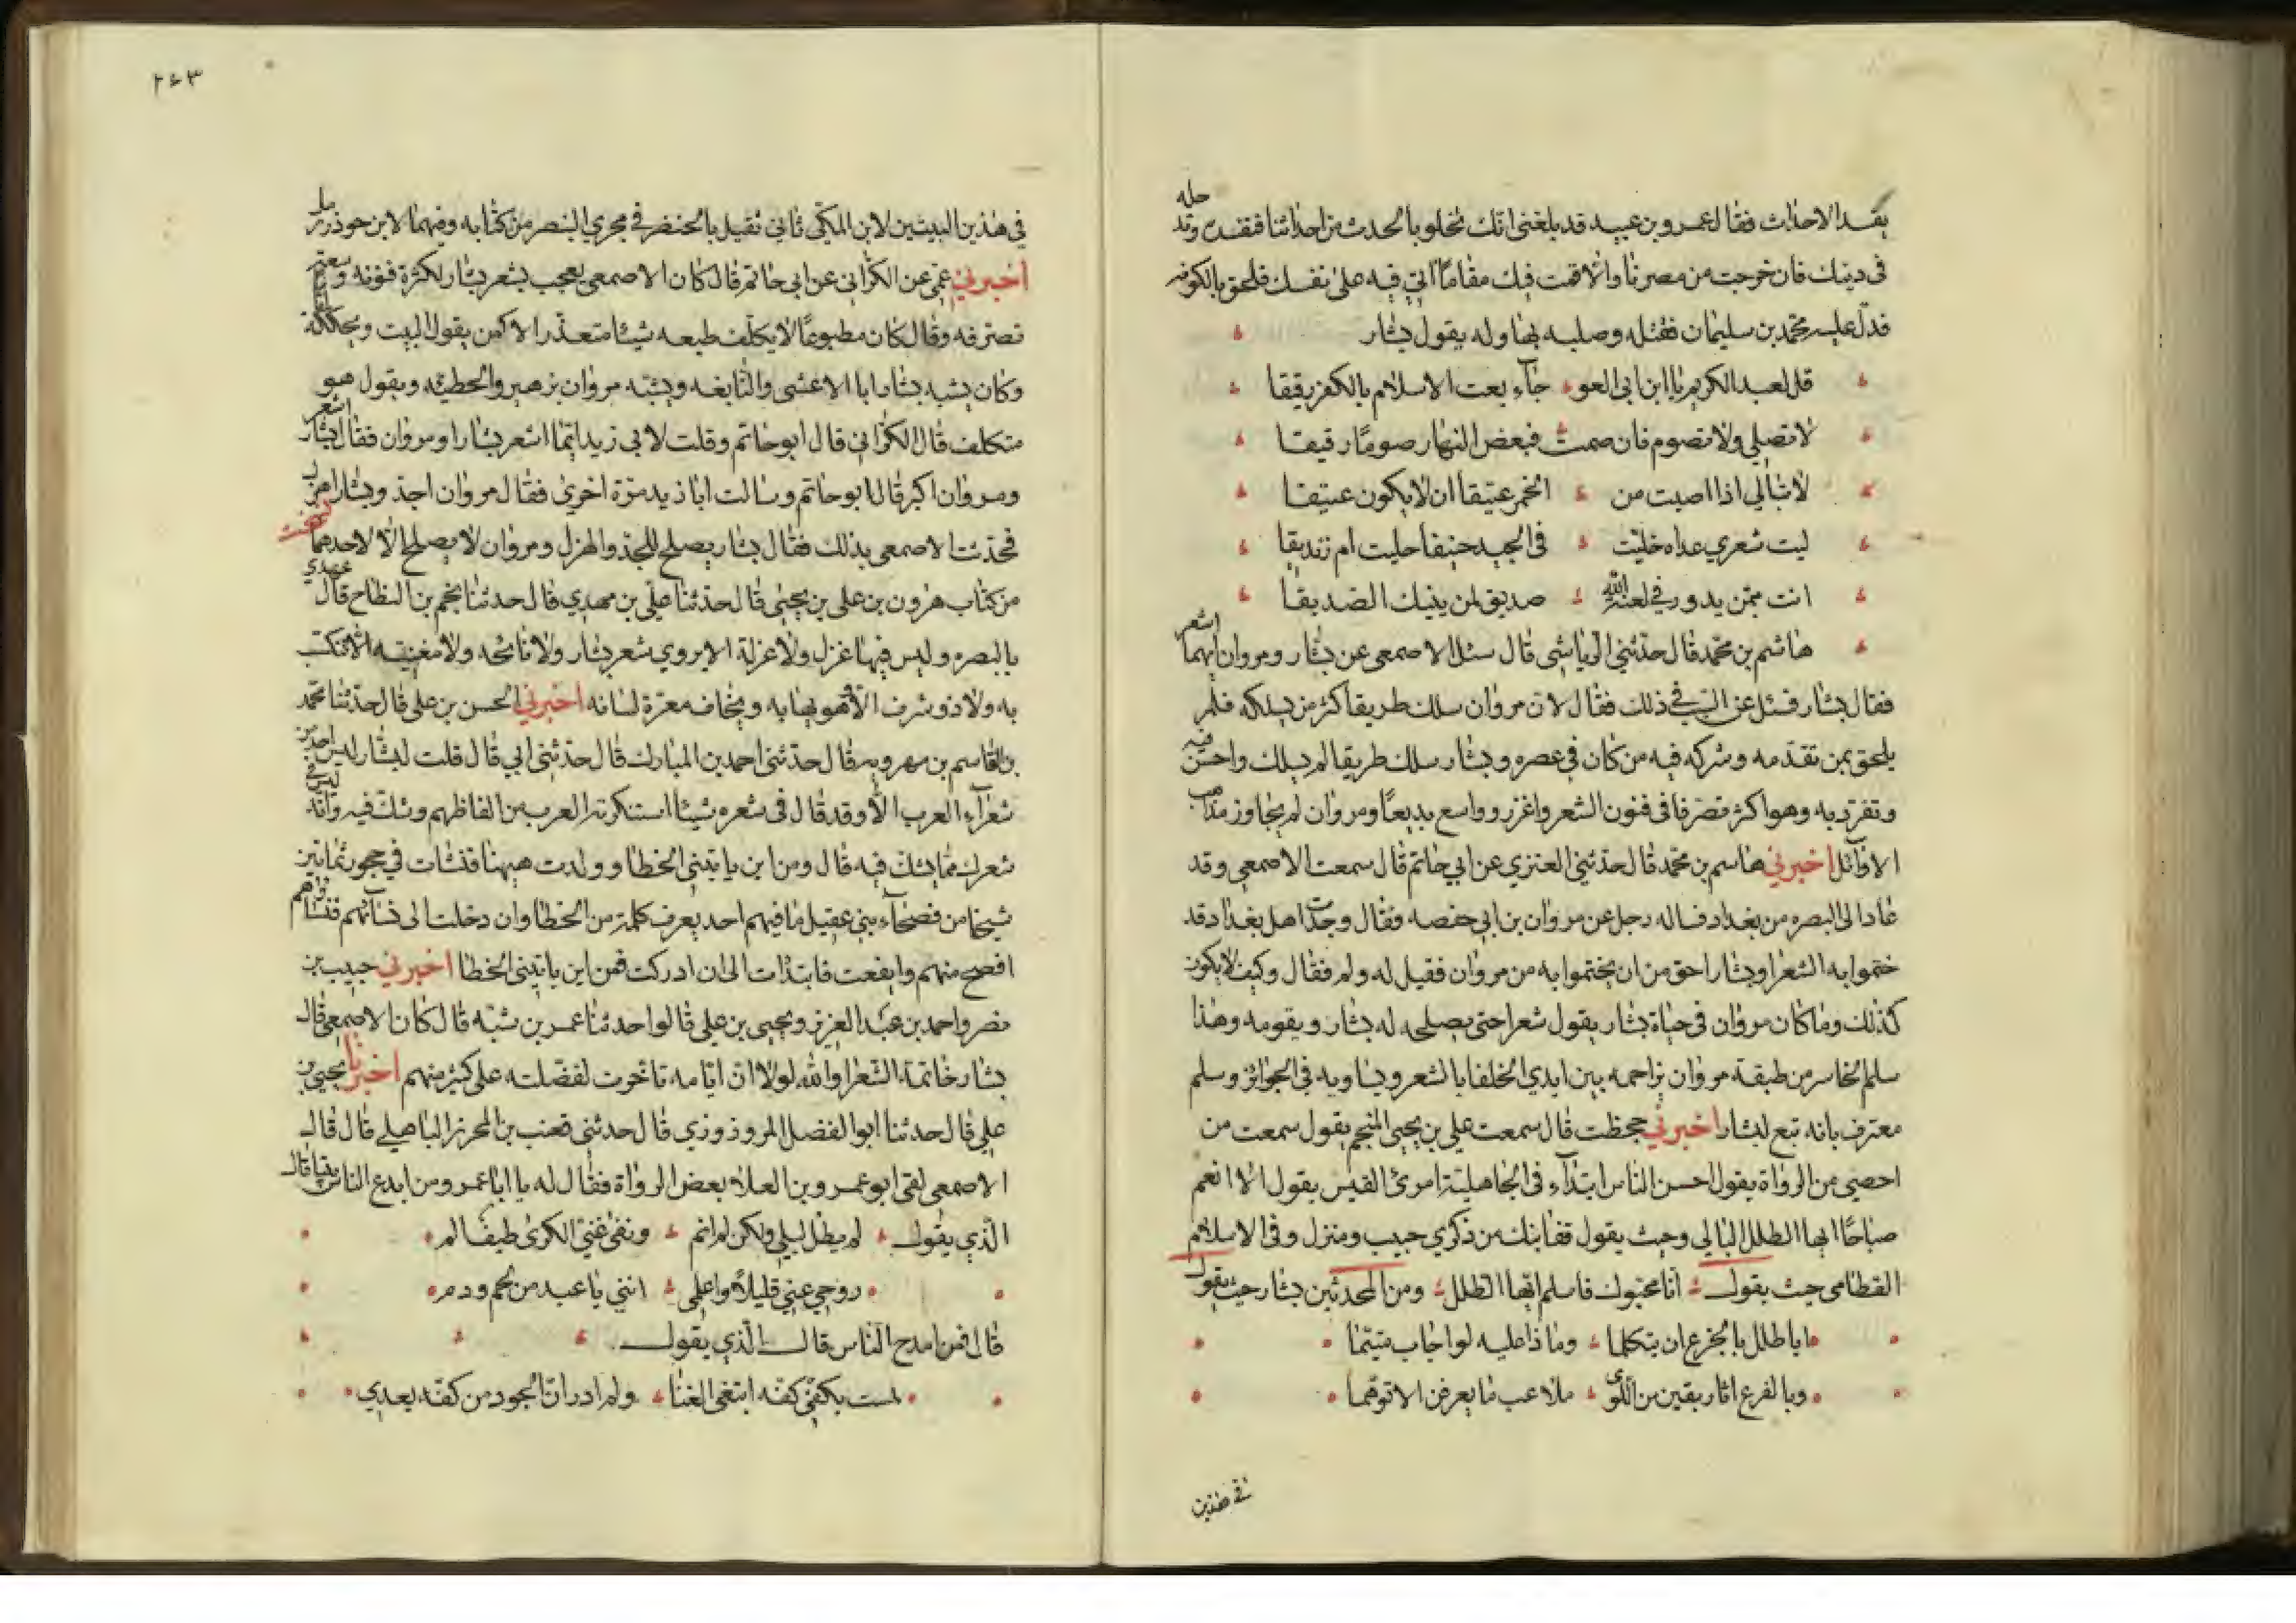 يفسد الاحداث فقال عمرو بن عبيد قد بلغني انك تخلو بالحدث من احداثنا فتفسده وتدخله
في دينك فان خرجت من مصرنا والا قمت فيك مقاما آتي فيه على نفسك فلحق بالكوفه
فدل عليه محمد بن سليمان فقتله وصلبه بها وله يقول بشار
قل لعبد الكريم يا ابن ابي العو جآء بعت الاسلام بالكفر يقفا
لا تصلي ولا تصوم فان صمت فبعض النهار صومًا رقيقا
لا تبالي اذا اصبت من الخمر عتيقا ان لا يكون عتيقا
ليت شعري غداه خليت في الجيد حنيفا حليت ام زنديقا
انت ممن يدور في لعنة الله صديق لمن ينيك الصديقا
هاشم بن محمد قال حدثني الرياشي قال سئل الاصمعي عن بشار ومروان ايهما اشعر
فقال بشار فسئل عن السبب في ذلك فقال لان مروان سلك طريقا كثر من يسلكه فلم
يلحق بمن تقدمه وشركه فيه من كان في عصره وبشار سلك طريقا لم يسلك واحسن فيه
وتفرد به وهو اكثر تصرفا في فنون الشعر واغزر وواسع بديعًا ومروان لم يتجاوز مذاهب
الاوآئل اخبرني هاشم بن محمد قال حدثني العنزي عن ابي حاتم قال سمعت الاصمعي وقد
عاد الى البصره من بغداد فساله رجل عن مروان بن ابي حفصه فقال وجدت اهل بغداد قد
ختموا به الشعرا وبشار احق من ان يختموا به من مروان فقيل له ولم فقال وكيف لا يكون
كذلك وما كان مروان في حياة بشار يقول شعرا حتى يصلحه له بشار ويقومه وهذا
سلم الخاسر من طبقة مروان يزاحمه بين ايدي الخلفا بالشعر ويساويه في الجوائز وسلم
معترف بانه تبع لبشار اخبرني جحظت قال سمعت علي بن يحيى المنجم يقول سمعت من
احصي من الرواة يقول احسن الناس ابتدآء في الجاهلية امرئ القيس يقول الا انعم
صباحًا ايها الطلل البالي وحيث يقول قفا نبك من ذكري حبيب ومنزل وفي الاسلام
القطامي حيث يقول انا محيوك فاسلم ايها الطلل ومن المحدثين بشار حيث يقول
ايا طلل بالجزع ان يتكلما وماذا عليه لو اجاب متيما
وبالفرع اثار بقين من اللوى ملاعب ما يعرفن الا توهما
في هذين
٢٤٣
في هذين البيتين لابن المكي ثاني ثقيل بالخنصر في مجري البنصر من كتابه وفيهما لابن جوذر رمل
اخبرني عمي عن الكراني عن ابي حاتم قال كان الاصمعي يعجب بشعر بشار لكثرة فنونه وسعة
تصرفه وقال كان مطبوعًا لا يكلف طبعه شيئا متعذرا لا كمن يقول البيت ويحككه
وكان يشبه بشارا بالاعشى والنابغه ويشبه مروان بزهير والحطيئه ويقول هو
متكلف قال الكراني قال ابو حاتم وقلت لابي زيد ايما اشعر بشار او مروان فقال بشار اشعر
ومروان اكبر قال ابو حاتم وسالت ابا زيد مرة اخري فقال مروان اجد وبشار اهزل
فحدثت الاصمعي بذلك فقال بشار يصلح للجد والهزل ومروان لا يصلح الا لاحدهما
من كتاب هرون بن علي بن يحيى قال حدثنا علي بن مهدي قال حدثنا نجم بن النطاح قال عهدي
بالبصره وليس فيها غزل ولا غزلة الا يروي شعر بشار ولا نائحه ولا مغنيه الا تتكسب
به ولا ذو شرف الا هو يهابه ويخاف معرة لسانه اخبرني الحسن بن علي قال حدثنا محمد
بن القاسم بن مهرويه قال حدثني احمد بن المبارك قال حدثني ابي قال قلت لبشار ليس احد من
شعرآء العرب الا وقد قال في شعره شيئا استنكرته العرب من الفاظهم وشك فيه وانه ليس في
شعرك مما يشك فيه قال ومن اين ياتيني الخطا وولدت هيهنا فنشات في حجور ثمانين
شيخا من فصحآء بني عقيل ما فيهم احد يعرف كلمة من الخطا وان دخلت الى نسآئهم فنساؤهم
افصح منهم وايفعت فابتدات الى ان ادركت فمن اين ياتيني الخطا اخبرني حبيب بن
نصر واحمد بن عبد العزيز ويحيى بن علي قالوا حدثنا عمر بن شبه قال كان الاصمعي قال
بشار خاتمة الشعرا والله لولا ان ايامه تاخرت لفضلته على كثير منهم اخبرنا يحيى بن
علي قال حدثنا ابو الفضل المروذوذي قال حدثني قعنب بن المحرز الباهلي قال قال
الاصمعي لقي ابو عمرو بن العلاء بعض الرواة فقال له يا ابا عمرو من ابدع الناس بيتا قال
الذي يقول لم يطل ليلي ولكن لم انم ونفى عني الكرى طيف الم
روحي عني قليلًا واعلمي انني يا عبد من لحم ودم
قال فمن امدح الناس قال الذي يقول
لمست بكفي كفه ابتغي الغنا ولم ادر ان الجود من كفه يعدي